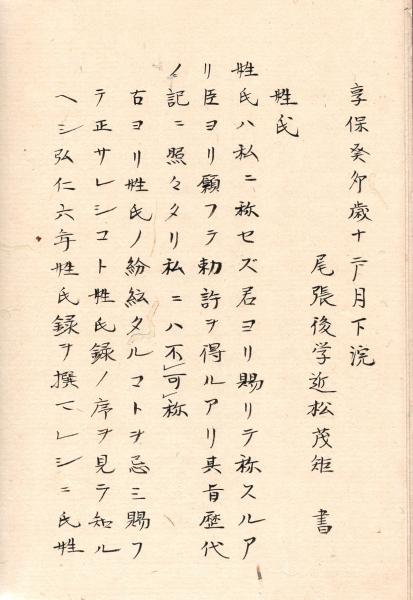 享保癸卯歳十二月下浣
尾張後学近松茂矩　書
姓氏
姓氏ハ私ニ称セズ君ヨリ賜リテ称スルア
リ臣ヨリ願フテ勅許ヲ得ルアリ其旨歴代
ノ記ニ照々タリ私ニハ不可称
古ヨリ姓氏ノ紛紜タルコトヲ忌ミ賜フ
テ正サレシコト姓氏録ノ序ヲ見テ知ル
ヘシ弘仁六年姓氏録ヲ撰マレシニ氏姓